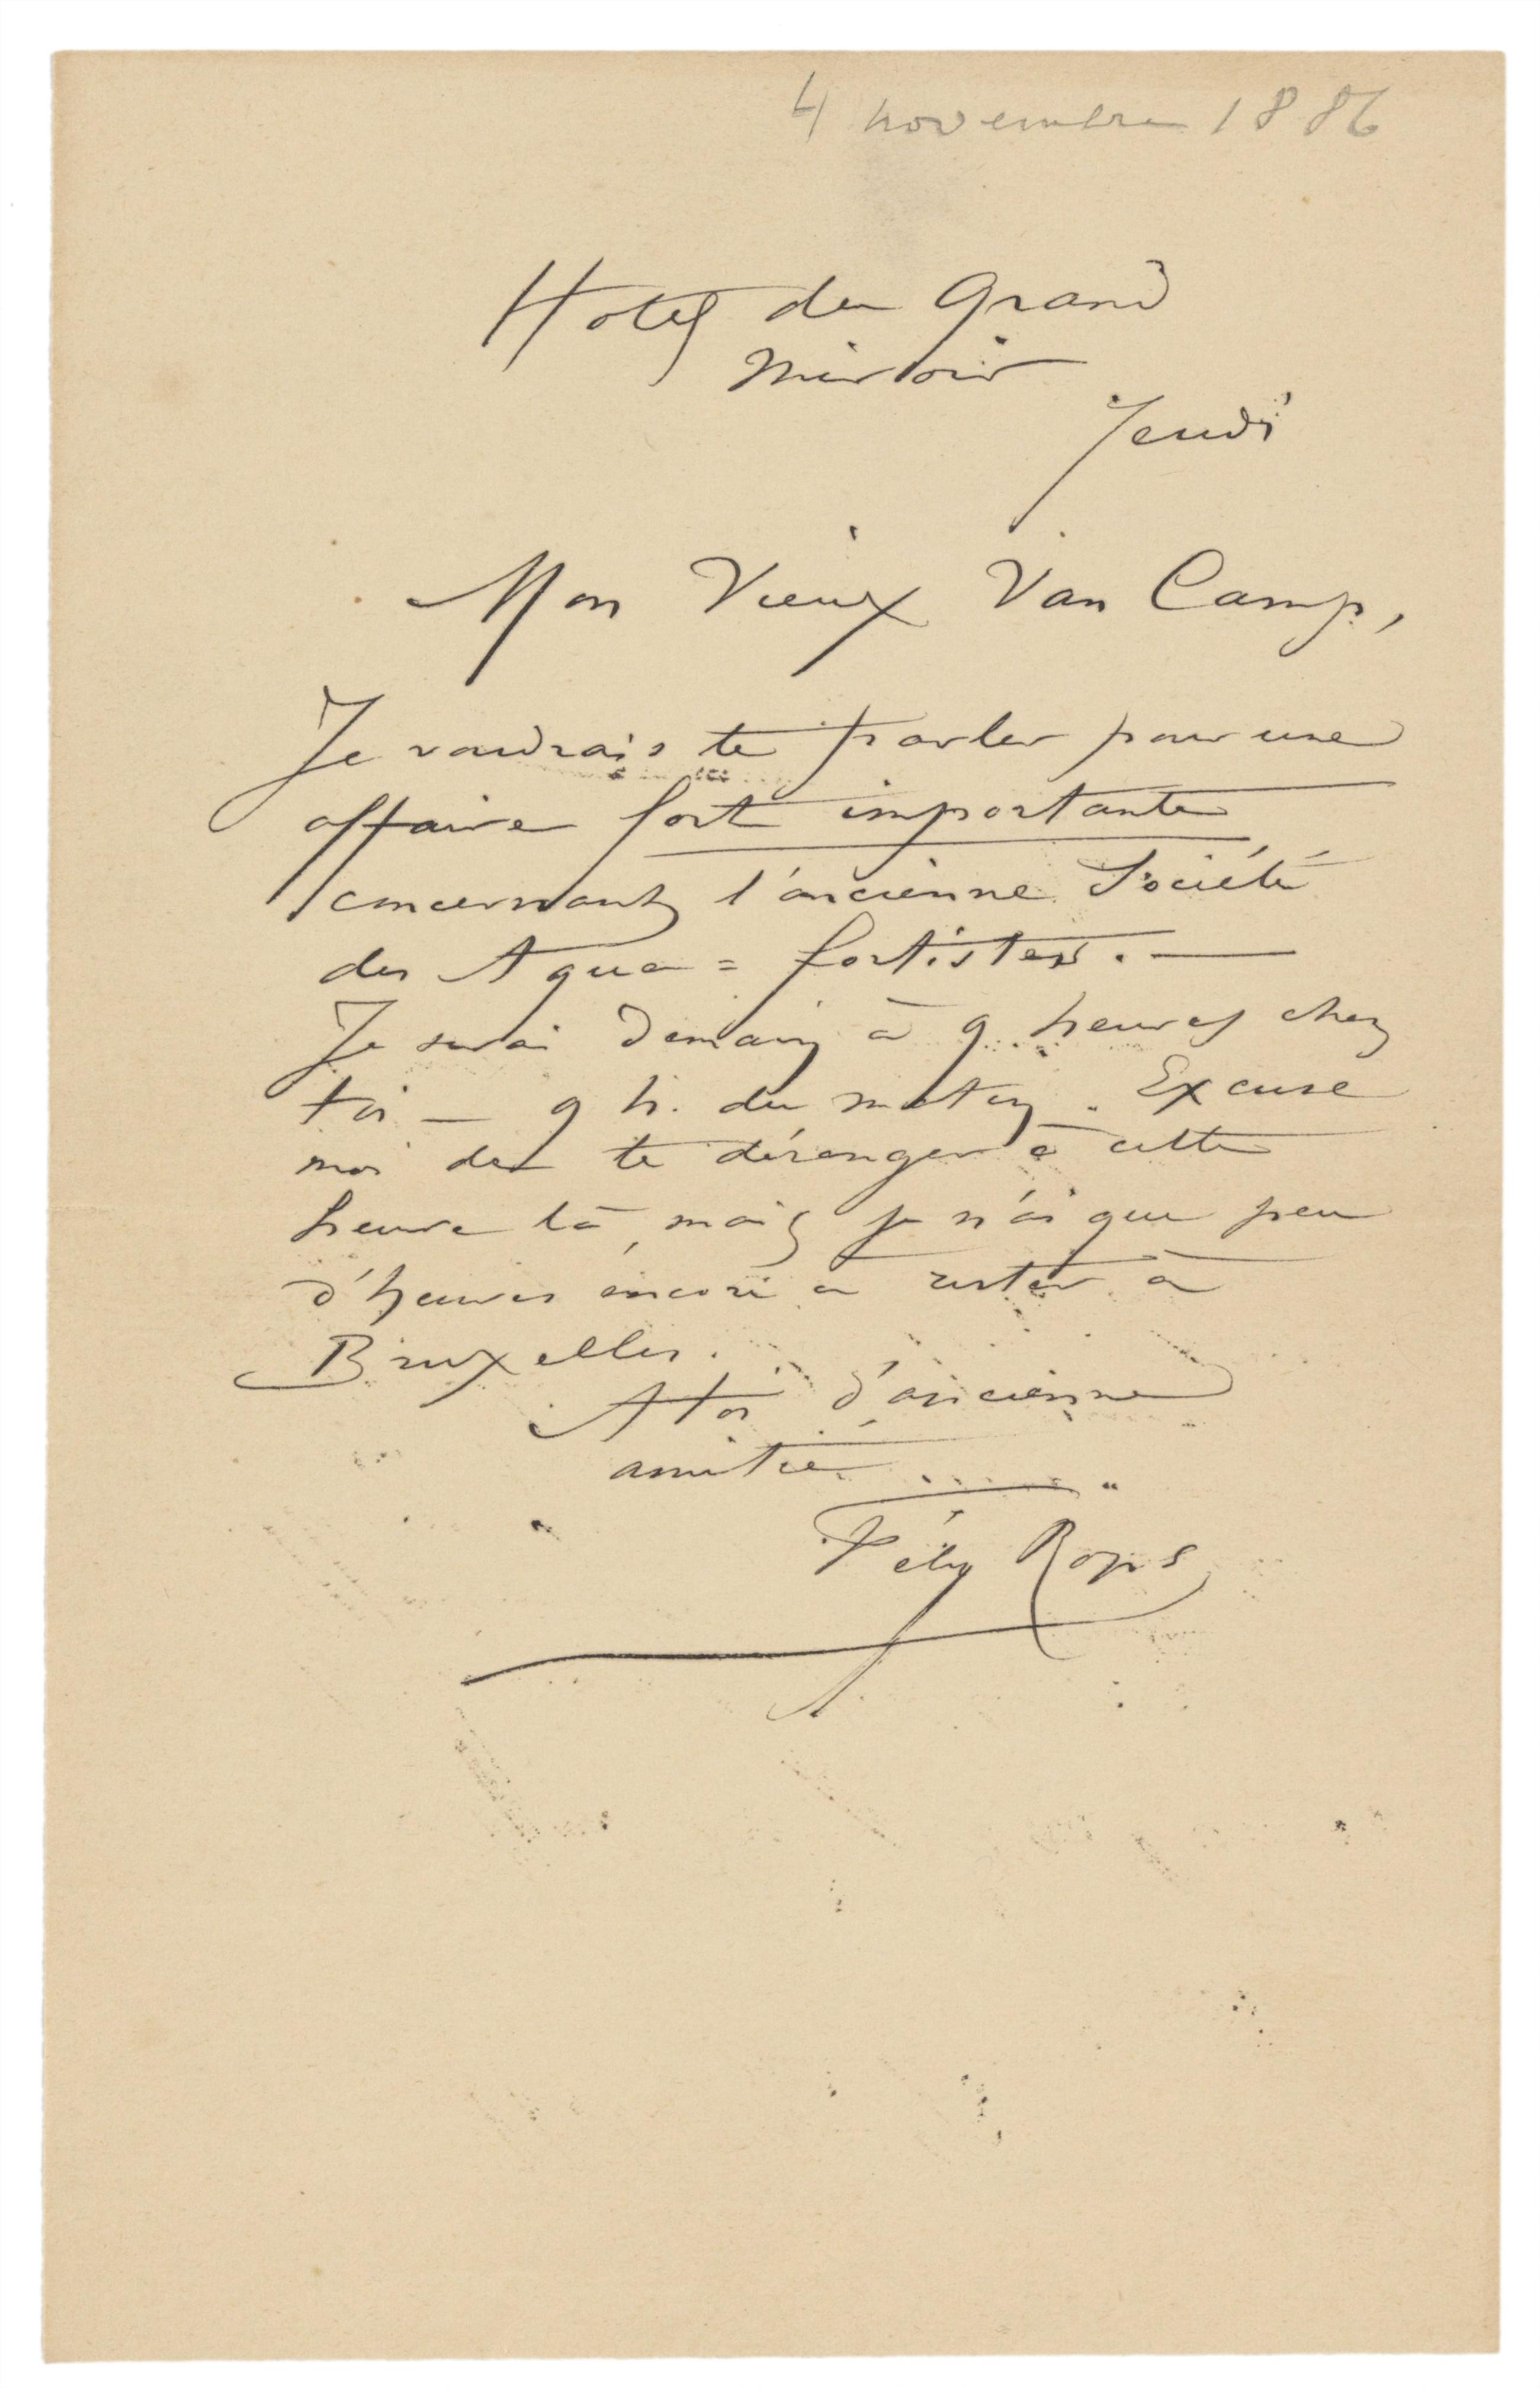 4 novembre 1886
Hotel du Grand
Miroir
Jeudi
Mon Vieux Van Camp,
Je voudrais te parler pour une
affaire fort importante
concernant l'ancienne Société
des Aqua = fortistes. —
Je serai demain à 9 heures chez
toi — 9 h. du matin. Excuse
moi de te déranger à cette
heure là, mais je n'ai que peu
d'heures encore à rester à
Bruxelles.
A toi d'ancienne
amitié
Fély Rops